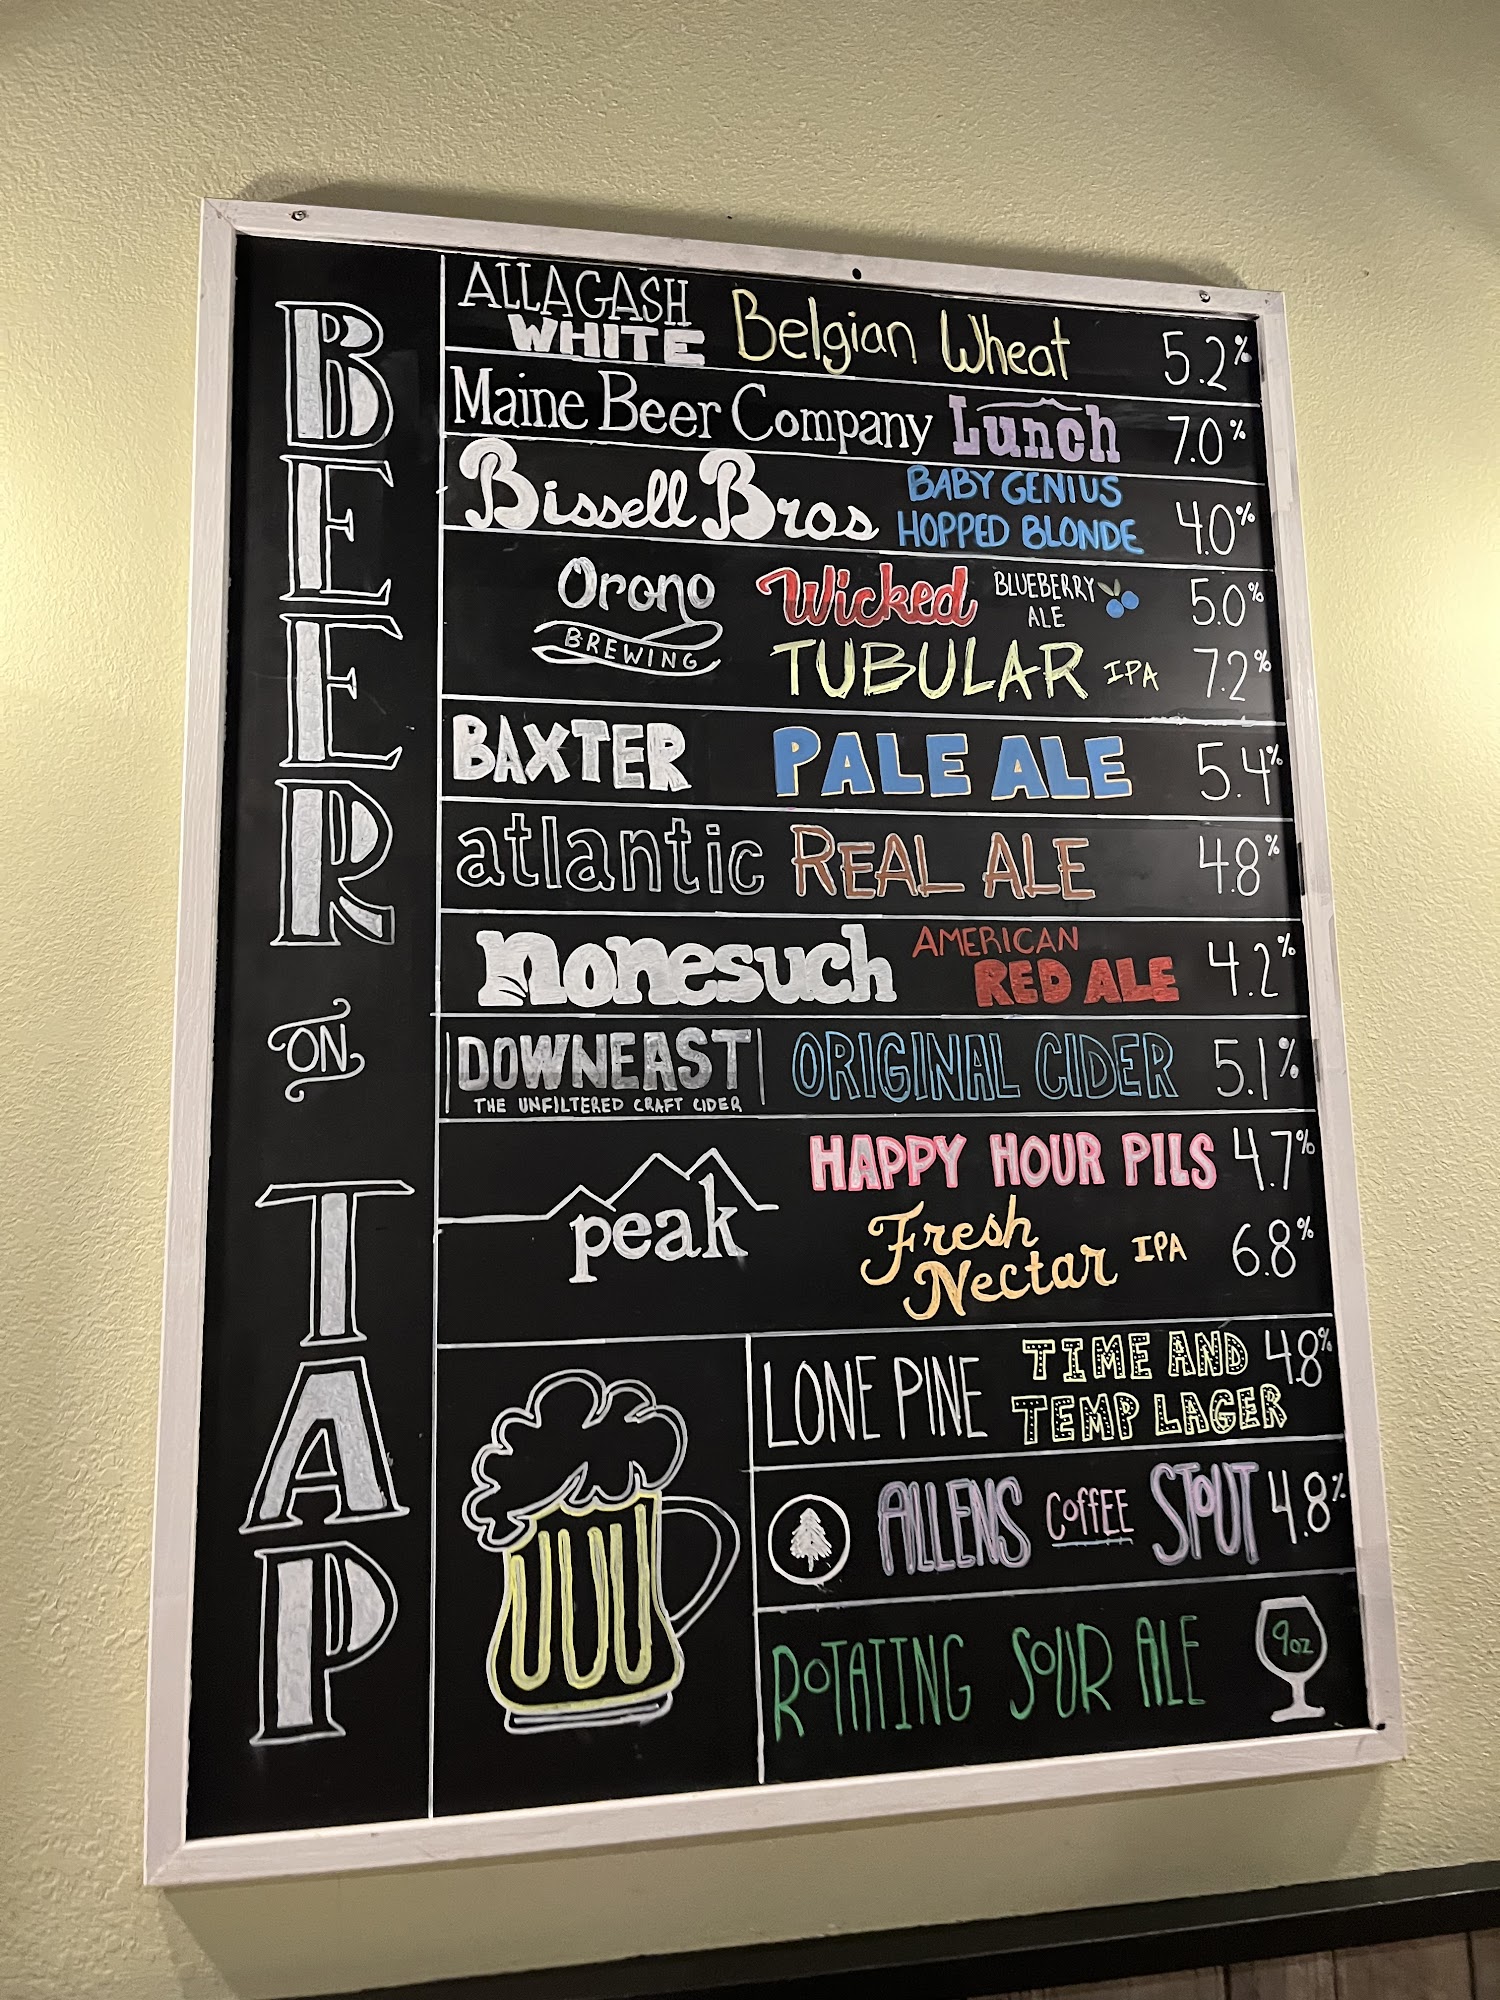 BEER ON TAP
ALLAGASH WHITE Belgian Wheat 5.2%
Maine Beer Company Lunch 7.0%
Bissell Bros BABY GENIUS HOPPED BLONDE 4.0%
Orono BREWING Wicked BLUEBERRY ALE 5.0%
TUBULAR IPA 7.2%
BAXTER PALE ALE 5.4%
atlantic REAL ALE 4.8%
nonesuch AMERICAN RED ALE 4.2%
DOWNEAST ORIGINAL CIDER 5.1%
THE UNFILTERED CRAFT CIDER
peak HAPPY HOUR PILS 4.7%
Fresh Nectar IPA 6.8%
LONE PINE TIME AND TEMP LAGER 4.8%
ALLENS COFFEE STOUT 4.8%
ROTATING SOUR ALE 9oz